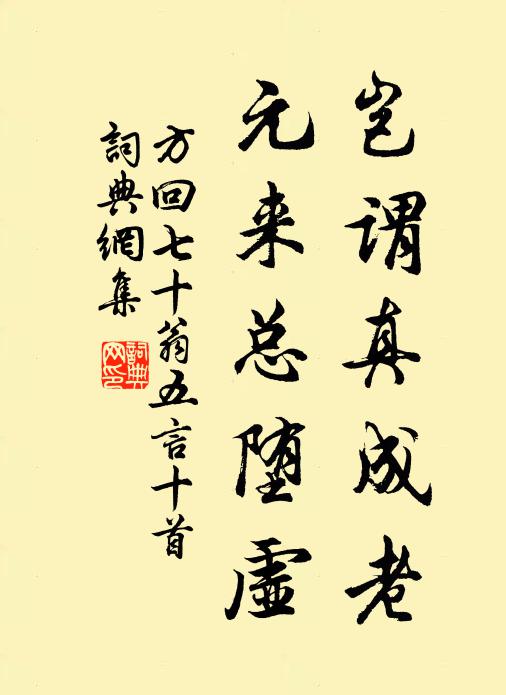 岂谓真成老
元来总堕虚
方回七十翁五言十首
詞典網集
詞典網印